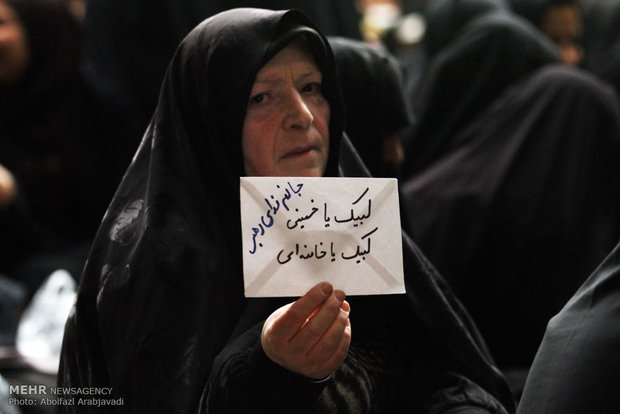 جانم فدای رهبر
لبیک یا خمینی
لبیک یا خامنه‌ای
MEHR NEWSAGENCY
Photo: Abolfazl Arabjavadi